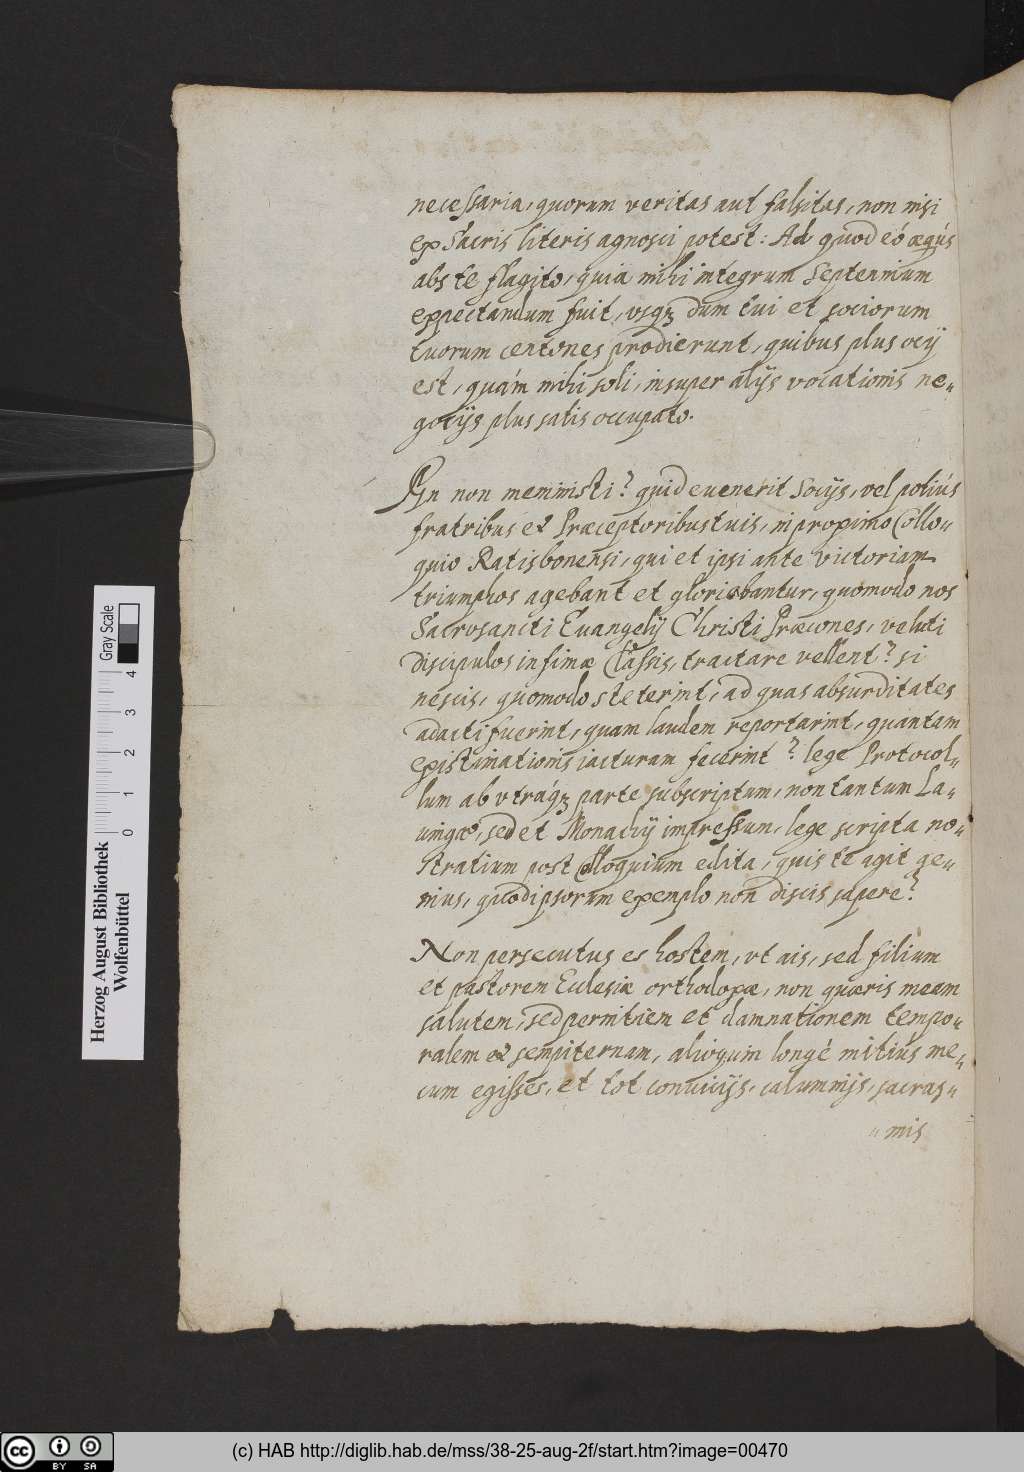 necessaria, quorum veritas aut falsitas, non nisi
ex Sacris literis agnosci potest: Ad quod eó æqús
abs te flagito, quia mihi integrum Septennium
expectandum fuit, vsqꝫ dum tui et sociorum
tuorum centones prodierunt, quibus plus ocij
est, quám mihi soli, insuper alijs vocationis ne„
gocijs plus satis occupato.
An non meministi? quid evenerit Socijs, vel potiús
fratribus et Præceptoribus tuis, in proximo Collo„
quio Ratisbonensi, qui et ipsi ante victoriam
triumphos agebant et gloriabantur, quomodo nos
Sacrosancti Euangelij Christi Præcones, veluti
discipulos infimæ Classis, tractare vellent? si
nescis, quomodo steterint, ad quas absurditates
adacti fuerint, quam laudem reportarint, quantam
existimationis iacturam fecerint? lege Protocol„
lum ab vtráqꝫ parte subscriptum, non tantum La„
uingæ, sed et Monachij impressum, lege scripta no„
stratium post Colloquium edita, quis te agit ge„
nius, quod ipsorum exemplo non discis sapere?
Non persecutus es hostem, vt ais, sed filium
et pastorem Ecclesiæ orthodoxæ, non quæris meam
salutem, sed pernitiem et damnationem tempo„
ralem et sempiternam, alioqum longé mitius me„
cum egisses, et tot conuicijs, calumnijs, sacras„
„ mis
Herzog August Bibliothek
Wolfenbüttel
Gray Scale
0 1 2 3 4
cc BY SA
(c) HAB http://diglib.hab.de/mss/38-25-aug-2f/start.htm?image=00470